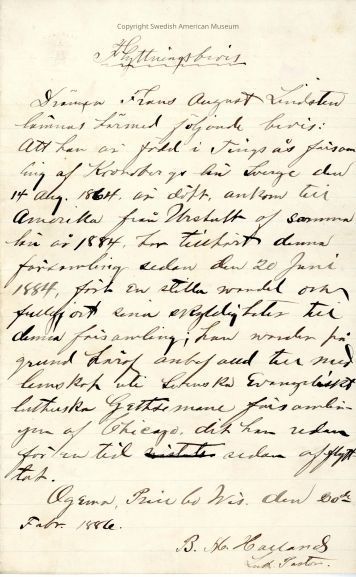 Copyright Swedish American Museum
Flyttningsbevis
Frans August Lindsten
lämnas härmed följande bevis:
Att han är född i Tingsås försam
ling af Kronobergs län Sverge den
14 Aug. 1864. är döpt, ankom till
Amerika från Urshult of samma
län år 1884, har tillhört denna
församling sedan den 20 Juni
1884, fört en stilla wandel och
fullgjort sina skyldigheter till
denna församling; han warder på
grund häraf anbefald till med
lemskap uti Svenska Evangeliskt
lutherska Gethsemane församlin
gen af Chicago, dit han redan
för en tid sedan afflytt
tat.
Ogema, Price Co Wis. den 20de
Febr. 1886.
B. H.
Luth Pastor.